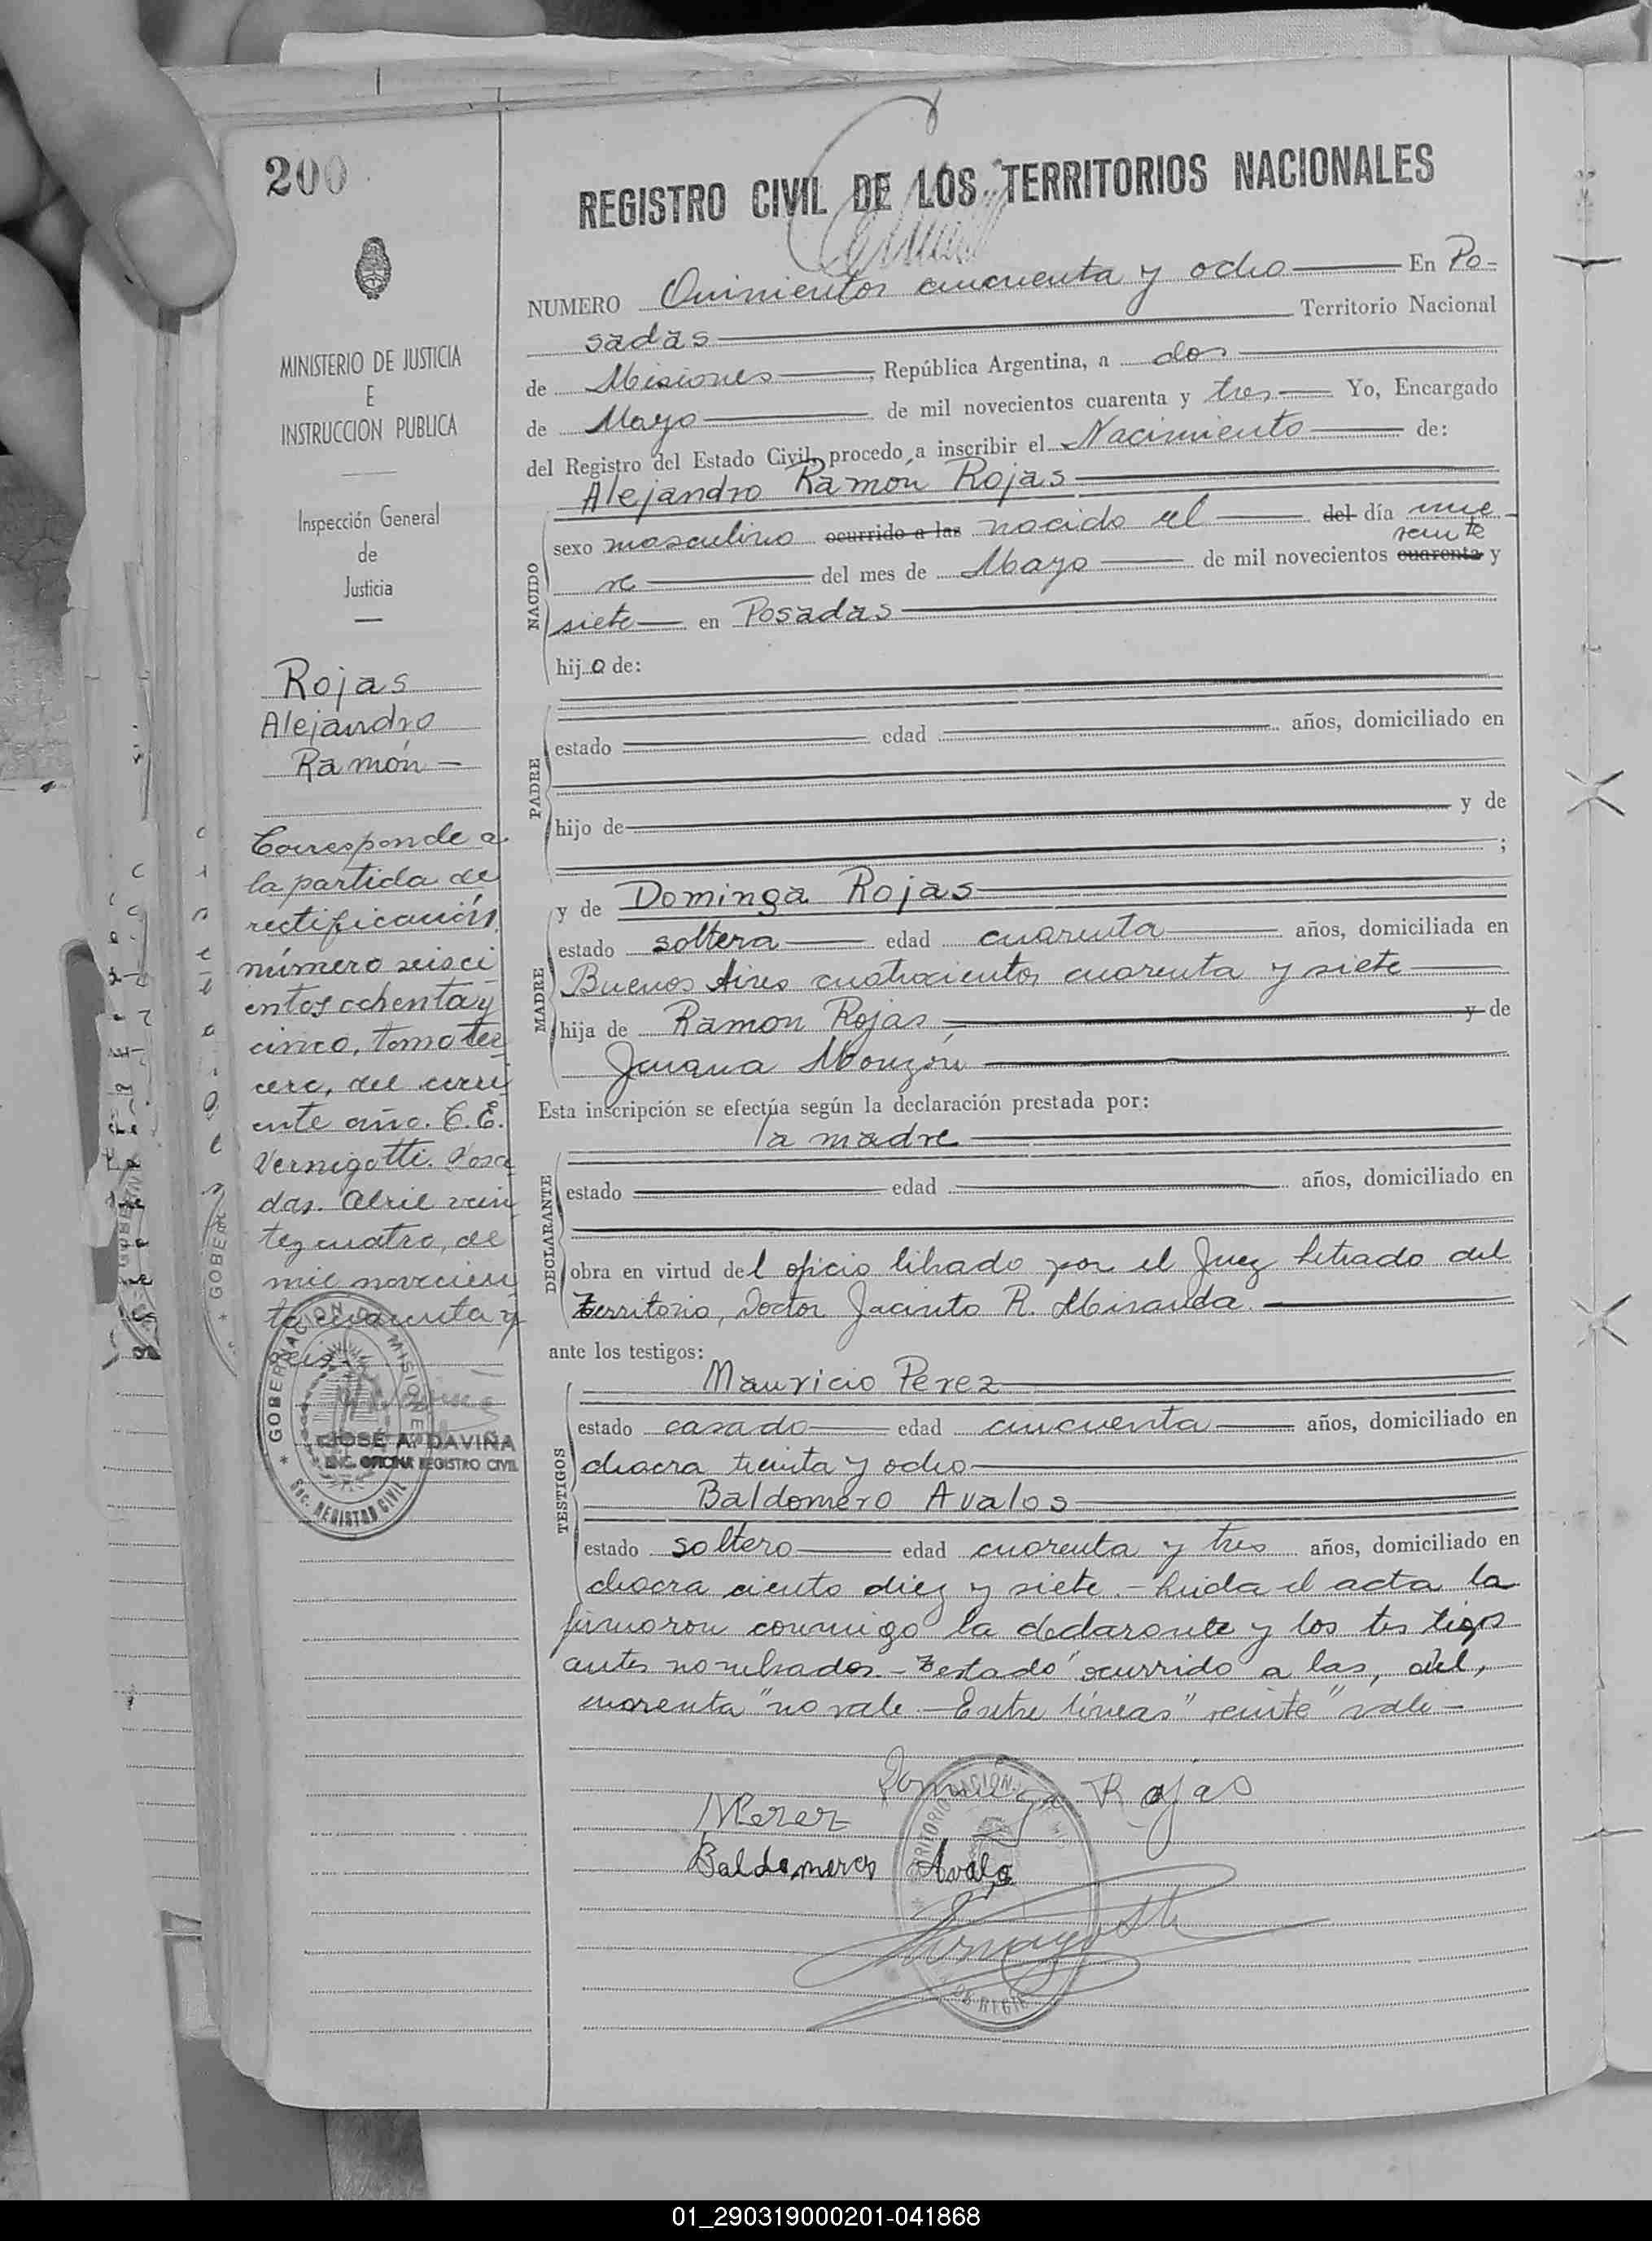 200
MINISTERIO DE JUSTICIA
E
INSTRUCCION PUBLICA
Inspección General
de
Justicia
Rojas
Alejandro
Ramón —
Corresponde a
la partida de
rectificación
número seisci
entos ochenta y
cinco, tomo ter
cero, del corri
ente año. C.E.
Vernigotti. Posa
das. Abril vein
te y cuatro, de
mil novecien
tos cuarenta y
seis.
GOBERNACION DE MISIONES
JOSÉ A. DAVIÑA
ENC. OFICINA REGISTRO CIVIL
SUC. REGISTRO CIVIL
REGISTRO CIVIL DE LOS TERRITORIOS NACIONALES
NUMERO Quinientos cincuenta y ocho — En Po-
sadas — Territorio Nacional
de Misiones —, República Argentina, a dos —
de Mayo — de mil novecientos cuarenta y tres — Yo, Encargado
del Registro del Estado Civil, procedo a inscribir el Nacimiento — de:
Alejandro Ramón Rojas —
NACIDO
sexo masculino ocurrido a las nacido el — del día nue-
veinte
ve — del mes de Mayo — de mil novecientos cuarenta y
siete — en Posadas —
hijo de:
PADRE
estado — edad — años, domiciliado en
hijo de — y de
;
MADRE
y de Dominga Rojas —
estado soltera — edad cuarenta — años, domiciliada en
Buenos Aires cuatrocientos cuarenta y siete —
hija de Ramon Rojas — y de
Juana Monzón —
Esta inscripción se efectúa según la declaración prestada por:
la madre —
DECLARANTE
estado — edad — años, domiciliado en
obra en virtud del oficio librado por el Juez Letrado del
Territorio, Doctor Jacinto R. Miranda. —
ante los testigos:
TESTIGOS
Mauricio Perez —
estado casado — edad cincuenta — años, domiciliado en
chacra treinta y ocho —
Baldomero Avalos —
estado soltero — edad cuarenta y tres años, domiciliado en
chacra ciento diez y siete. — Leida el acta la
firmaron conmigo la declarante y los testigos
antes nombrados. — Testado "ocurrido a las, del,
cuarenta" no vale. — Entre líneas "veinte" vale —
Dominga Rojas
MPerez
Baldomero Avalo
01_290319000201-041868